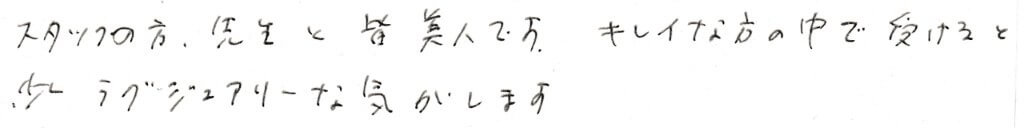 スタッフの方、先生と皆美人です。キレイな方の中で受けると
少しラグジュアリーな気がします